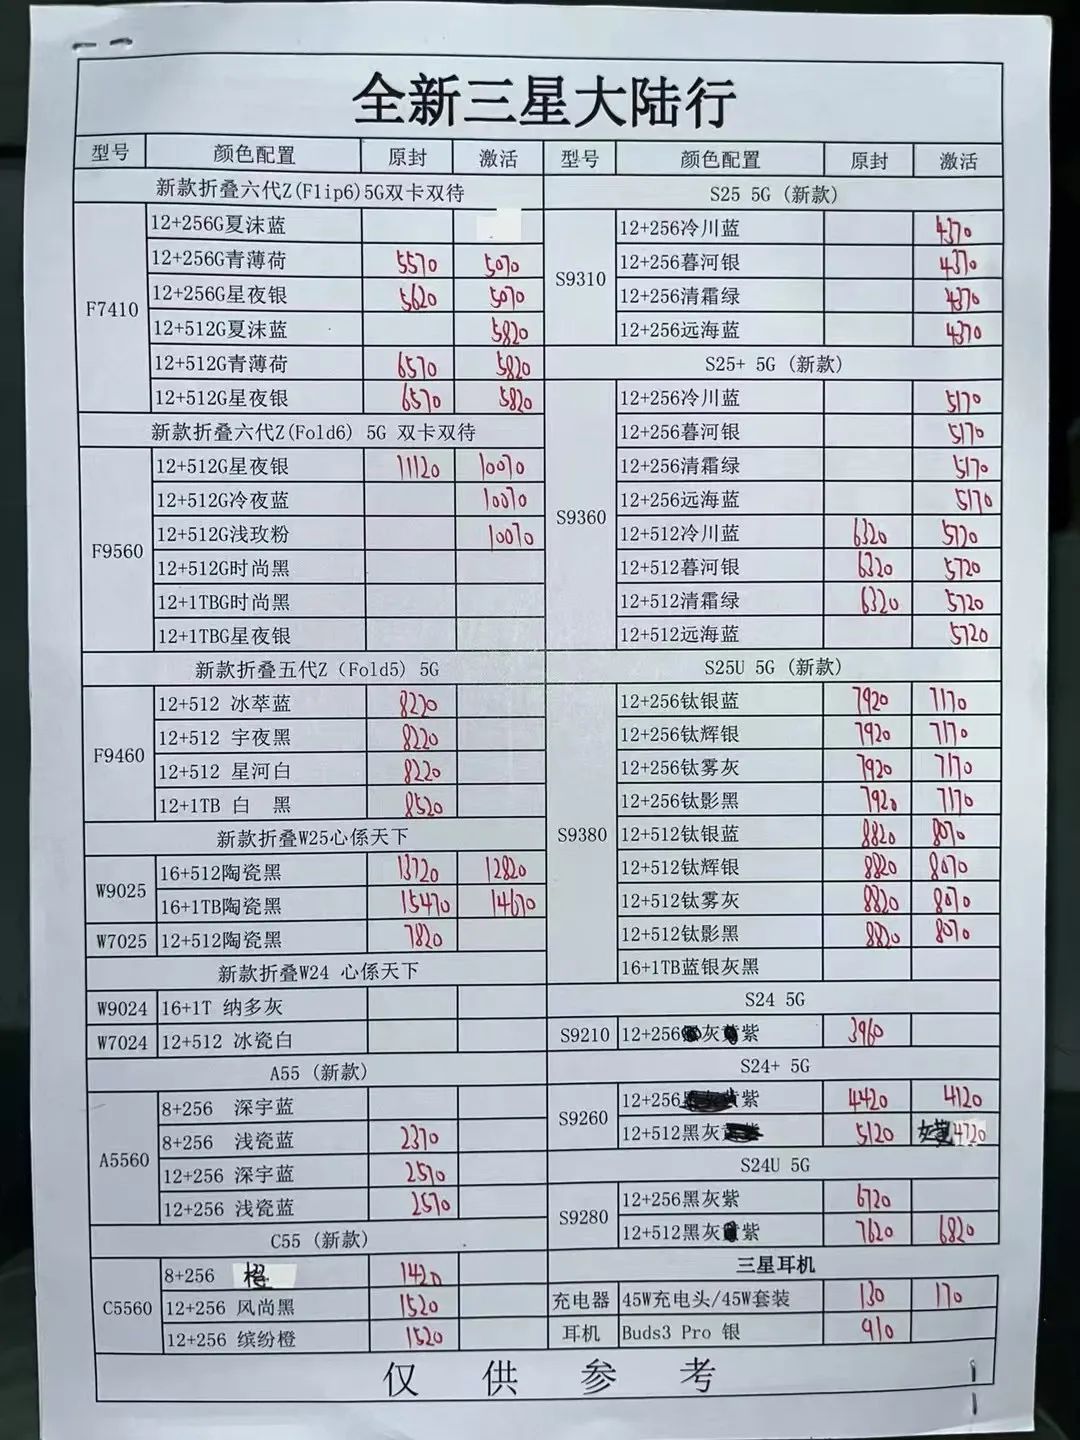 全新三星大陆行
型号 颜色配置 原封 激活
新款折叠六代Z(Flip6)5G双卡双待
F7410
12+256G夏沫蓝
12+256G青薄荷 5570 5070
12+256G星夜银 5620 5070
12+512G夏沫蓝 5820
12+512G青薄荷 6570 5820
12+512G星夜银 6570 5820
新款折叠六代Z(Fold6) 5G 双卡双待
F9560
12+512G星夜银 11120 10070
12+512G冷夜蓝 10070
12+512G浅玫粉 10070
12+512G时尚黑
12+1TBG时尚黑
12+1TBG星夜银
新款折叠五代Z（Fold5）5G
F9460
12+512 冰萃蓝 8220
12+512 宇夜黑 8220
12+512 星河白 8220
12+1TB 白 黑 8520
新款折叠W25心係天下
W9025
16+512陶瓷黑 13720 12820
16+1TB陶瓷黑 15470 14670
W7025 12+512陶瓷黑 7820
新款折叠W24 心係天下
W9024 16+1T 纳多灰
W7024 12+512 冰瓷白
A55（新款）
A5560
8+256 深宇蓝
8+256 浅瓷蓝 2370
12+256 深宇蓝 2570
12+256 浅瓷蓝 2570
C55（新款）
C5560
8+256 橙 1420
12+256 风尚黑 1520
12+256 缤纷橙 1520
型号 颜色配置 原封 激活
S25 5G（新款）
S9310
12+256冷川蓝 4370
12+256暮河银 4370
12+256清霜绿 4370
12+256远海蓝 4370
S25+ 5G（新款）
S9360
12+256冷川蓝 5170
12+256暮河银 5170
12+256清霜绿 5170
12+256远海蓝 5170
12+512冷川蓝 6320 5720
12+512暮河银 6320 5720
12+512清霜绿 6320 5720
12+512远海蓝 5720
S25U 5G（新款）
S9380
12+256钛银蓝 7920 7170
12+256钛辉银 7920 7170
12+256钛雾灰 7920 7170
12+256钛影黑 7920 7170
12+512钛银蓝 8820 8070
12+512钛辉银 8820 8070
12+512钛雾灰 8820 8070
12+512钛影黑 8820 8070
16+1TB蓝银灰黑
S24 5G
S9210 12+256灰紫 3960
S24+ 5G
S9260
12+256紫 4420 4120
12+512黑灰 5120 4720
S24U 5G
S9280
12+256黑灰紫 6720
12+512黑灰紫 7620 6820
三星耳机
充电器 45W充电头/45W套装 130 170
耳机 Buds3 Pro 银 910
仅供参考